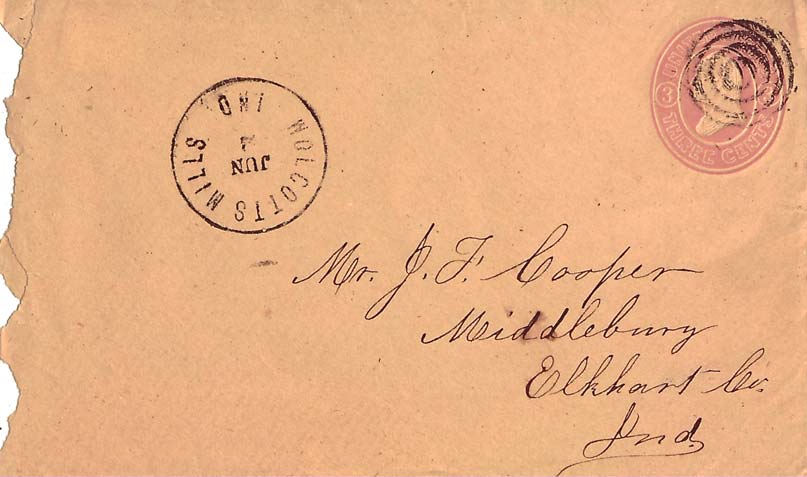 WOLCOTTS MILLS IND.
JUN
UNI
3
THREE CENTS
Mr. J. F. Cooper
Middlebury
Elkhart Co.
Ind.